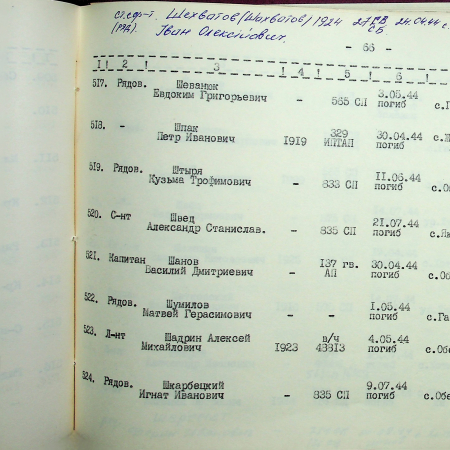 ст.сер-т. Шехватов (Шахватов) 1924 27 СВ 24.04.44 с.
(ряд). Іван Олексійович. СБ
- 66 -
1 ! 2 ! 3 ! 4 ! 5 ! 6 !
517. Рядов. Шеванюк 3.05.44
Евдоким Григорьевич - 565 СП погиб с.П
518. - Шпак 329 30.04.44
Петр Иванович 1919 ИПТАП погиб
519. Рядов. Штыря 11.06.44
Кузьма Трофимович - 833 СП погиб с.О
520. С-нт Швед 21.07.44
Александр Станислав. - 835 СП погиб с.Як
521. Капитан Шанов 137 гв. 30.04.44
Василий Дмитриевич - АП погиб с.Об
522. Рядов. Шумилов 1.05.44
Матвей Герасимович - - погиб с.Га
523. Л-нт Шадрин Алексей в/ч 4.05.44
Михайлович 1923 43813 погиб с.Обе
524. Рядов. Шкарбецкий 9.07.44
Игнат Иванович - 835 СП погиб с.Обе